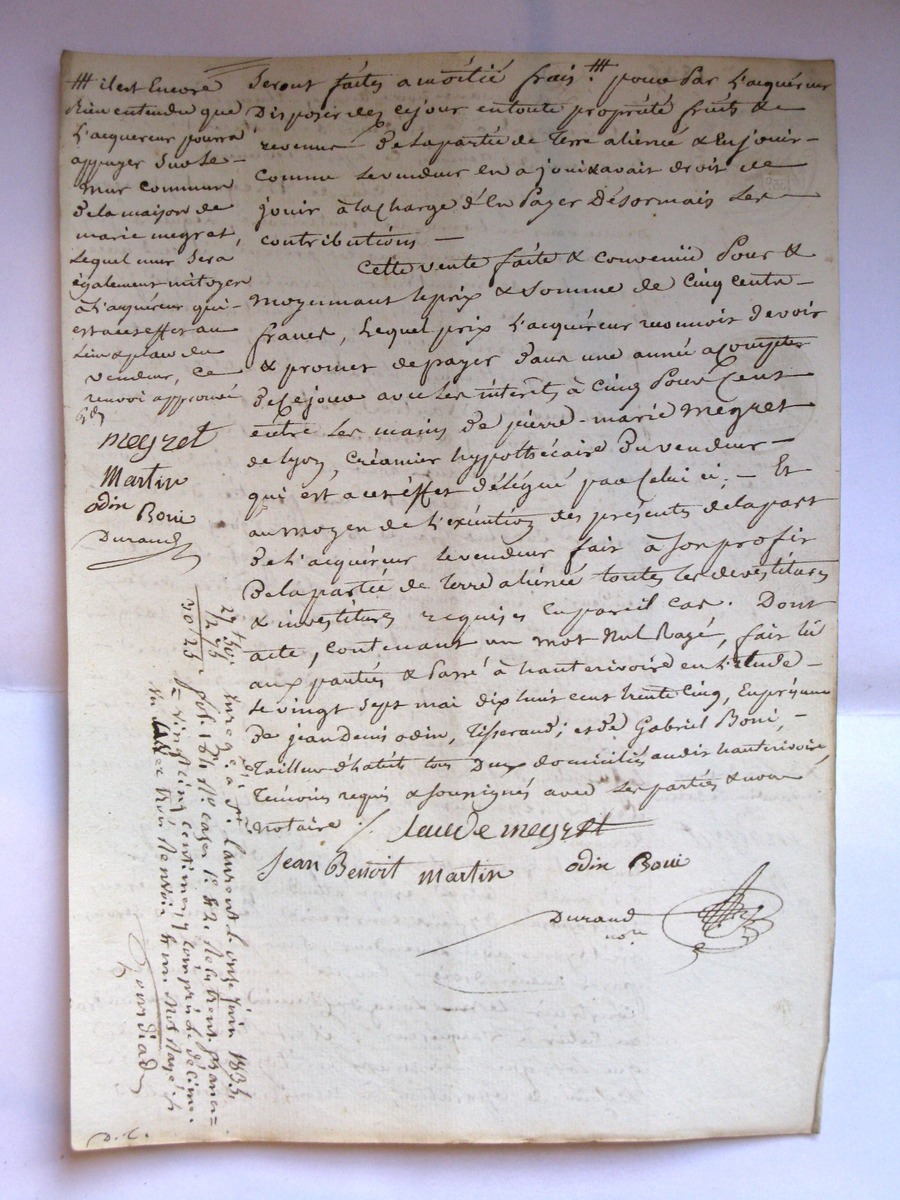 seront faites a moitié frais. # pour par l'acquéreur
disposer dez ce jour en toute propriété fruits &
revenus de la partie de terre aliéné & en jouir
comme le vendeur en a joui & avait droit de
jouir à la charge d'en payer désormais les
contributions —
Cette vente faite & convenüe pour &
moyennant le prix & somme de cinq cents
francs, lequel prix l'acquéreur reconnoit devoir
& promet de payer dans une année a compter
de ce jour avec les intérêts à cinq pour cent
entre les mains de pierre-marie megret
de lyon, créancier hypothécaire du vendeur
qui est a cet effet délégué par celui ci; — Et
au moyen de l'exécution des présents de la part
de l'acquéreur le vendeur fait à son profit
de la partie de terre aliéné toutes les devestitures
& investitures requises en pareil cas. Dont
acte, contenant un mot nul rayé, fait lu
aux parties & passé à hauterivoire en l'étude
le vingt sept mai dix huit cent trente cinq, en présence
de jean Denis odin, tisserand; et de Gabriel Boni,
tailleur d'habits tous deux domiciliés audit hauterivoire
témoins requis & soussignés avec les parties & nous
notaire /.
Claude megret
Jean Benoit Martin odin Boni
Durand
nore
# il est Encore
Bien entendu que
l'acquereur pourra
appuyer sur le
mur commun
de la maison de
marie megrat,
lequel mur sera
également mitoyen
à l'acquéreur qui
est a cet effet au
lieu & place du
vendeur, Ce
renvoi approuvé
megret
Martin
odin Boni
Durand
27 50.
2 75
30 25
Enreg. à St. Laurent le onze juin 1835,
fol. 131 Ro. cases 1e & 2. Reçu trente francs
vingt cinq centimes y compris le décime
Bourdiad
D. C.